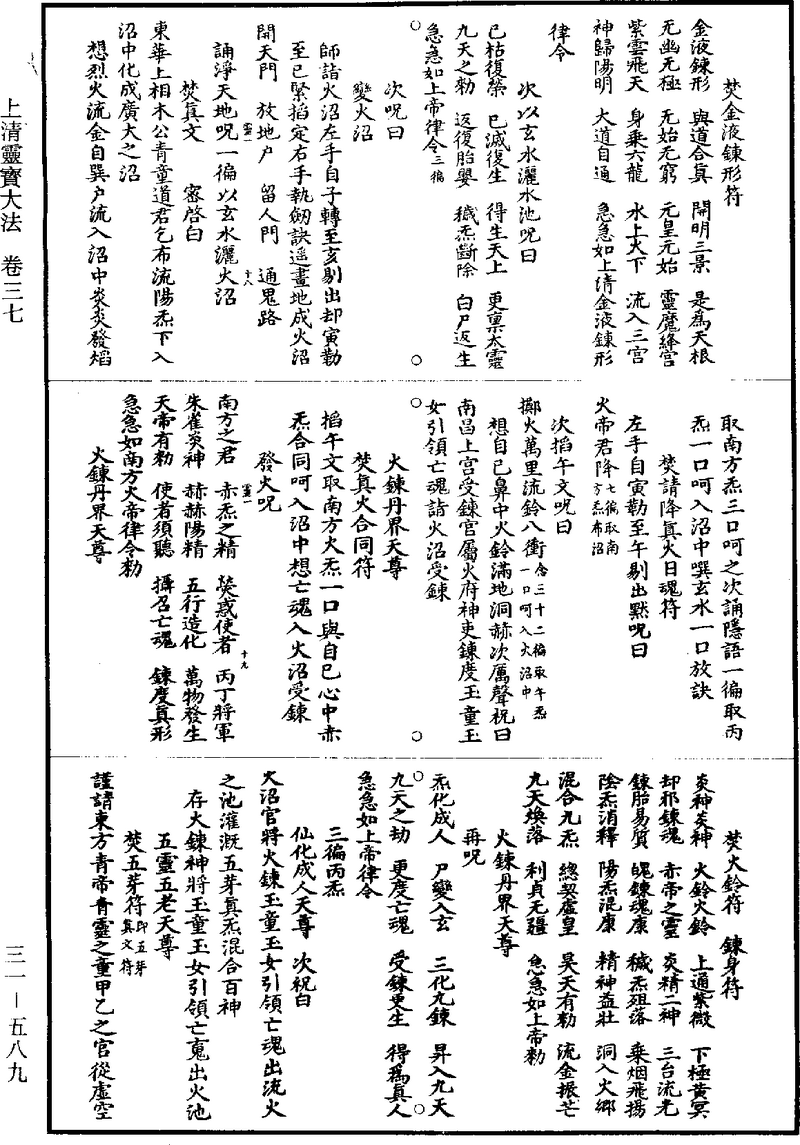 焚金液鍊形符
金液鍊形　與道合眞　開明三景　是爲天根
无幽无極　无始无窮　元皇元始　靈魔絳宮
紫雲飛天　身乗六龍　水上火下　流入三宮
神歸陽明　大道自通　急急如上清金液鍊形
律令
次以玄水灑水池呪曰
已枯復榮　已滅復生　得生天上　更禀太靈
九天之勑　返復胎嬰　穢炁斷除　白尸返生
急急如上帝律令三徧
次呪曰
變火沼
師詣火沼左手自子轉至亥剔出却寅勒
至巳緊搯定右手執劒訣遥畫地成火沼
開天門　放地戶　留人門　通鬼路
誦淨天地呪一徧以玄水灑火沼
焚眞文　密啓白
東華上相木公青童道君乞布流陽炁下入
沼中化成廣大之沼
想烈火流金自巽戶流入沼中炎炎發熖
取南方炁三口呵之次誦隱語一徧取丙
炁一口呵入沼中噀玄水一口放訣
焚請降眞火日魂符
左手自寅勒至午剔出黙呪曰
火帝君降七徧取南方炁布沼
次搯午文呪曰
擲火萬里流鈴八衝念三十二徧取午炁一口呵入火沼中
想自己鼻中火鈴滿地洞赫次厲聲祝曰
南昌上宮受鍊宮屬火府神吏鍊度玉童玉
女引領亡魂詣火沼受鍊
火鍊丹界天尊
焚眞火合同符
搯午文取南方火炁一口與自己心中赤
炁合同呵入沼中想亡魂入火沼受鍊
發火呪
南方之君　赤炁之精　熒惑使者　丙丁將軍
朱雀炎神　赫赫陽精　五行造化　萬物發生
天帝有勑　使者須聽　攝召亡魂　鍊度眞形
急急如南方火帝律令勑
火鍊丹界天尊
焚火鈴符　鍊身符
炎神炎神　火鈴火鈴　上通紫微　下極黄冥
却邪鍊魂　赤帝之靈　炎精二神　三台流光
鍊胎易質　魄鍊魂康　穢炁殂落　乗烟飛揚
陰炁消釋　陽炁混康　精神益壯　洞入火鄉
混合九炁　緫契虛皇　昊天有勑　流金振芒
九天煥落　利貞无疆　急急如上帝勑
火鍊丹界天尊
再呪
炁化成人　尸變入玄　三化九鍊　昇入九天
九天之劫　更度亡魂　受鍊更生　得爲眞人
急急如上帝律令
三徧丙炁
仙化成人天尊　次祝白
火沼官將火鍊玉童玉女引領亡魂出流火
之池灌溉五芽眞炁混合百神
存火鍊神將玉童玉女引領亡䰟出火池
五靈五老天尊
焚五芽符即五芽眞文符
謹請東方青帝青靈之童甲乙之官從虛空
上清靈寳大法　卷三七
三一－五八九